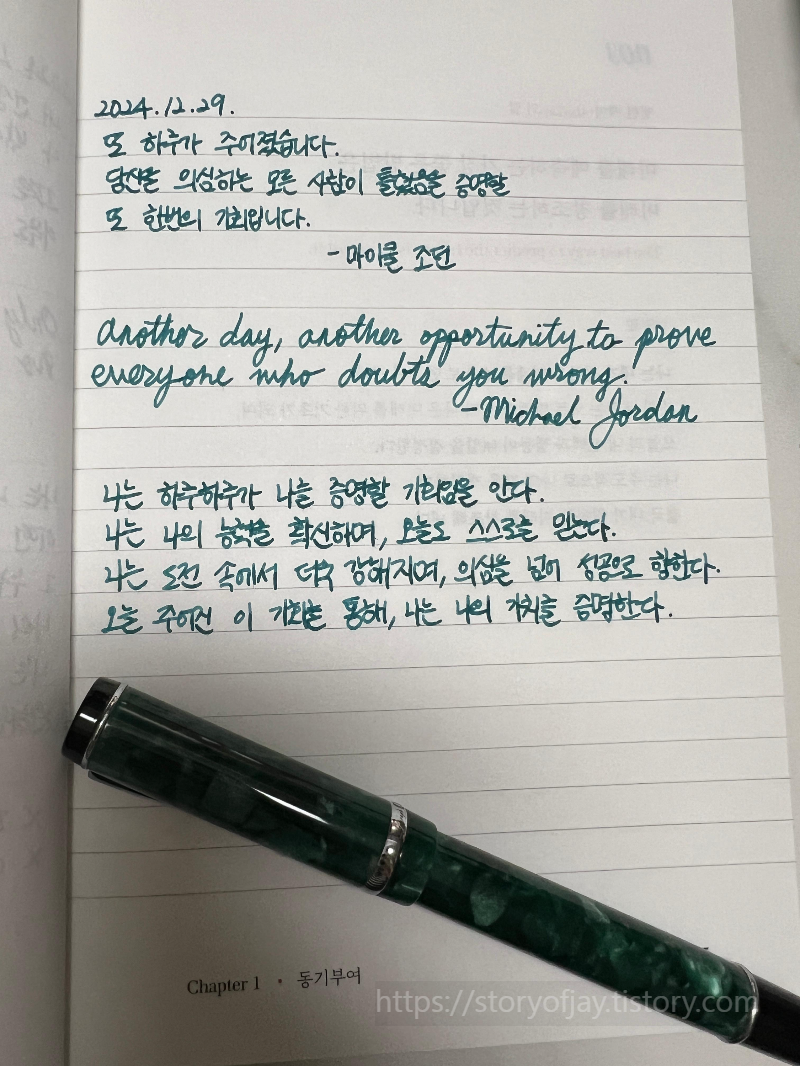 2024.12.29.
또 하루가 주어졌습니다.
당신을 의심하는 모든 사람이 틀렸음을 증명할
또 한번의 기회입니다.
- 마이클 조던
Another day, another opportunity to prove
everyone who doubts you wrong.
- Michael Jordan
나는 하루하루가 나를 증명할 기회임을 안다.
나는 나의 능력을 확신하며, 오늘도 스스로를 믿는다.
나는 도전 속에서 더욱 강해지며, 의심을 넘어 성공으로 향한다.
오늘 주어진 이 기회를 통해, 나는 나의 가치를 증명한다.
Chapter 1 • 동기부여
https://storyofjay.tistory.com